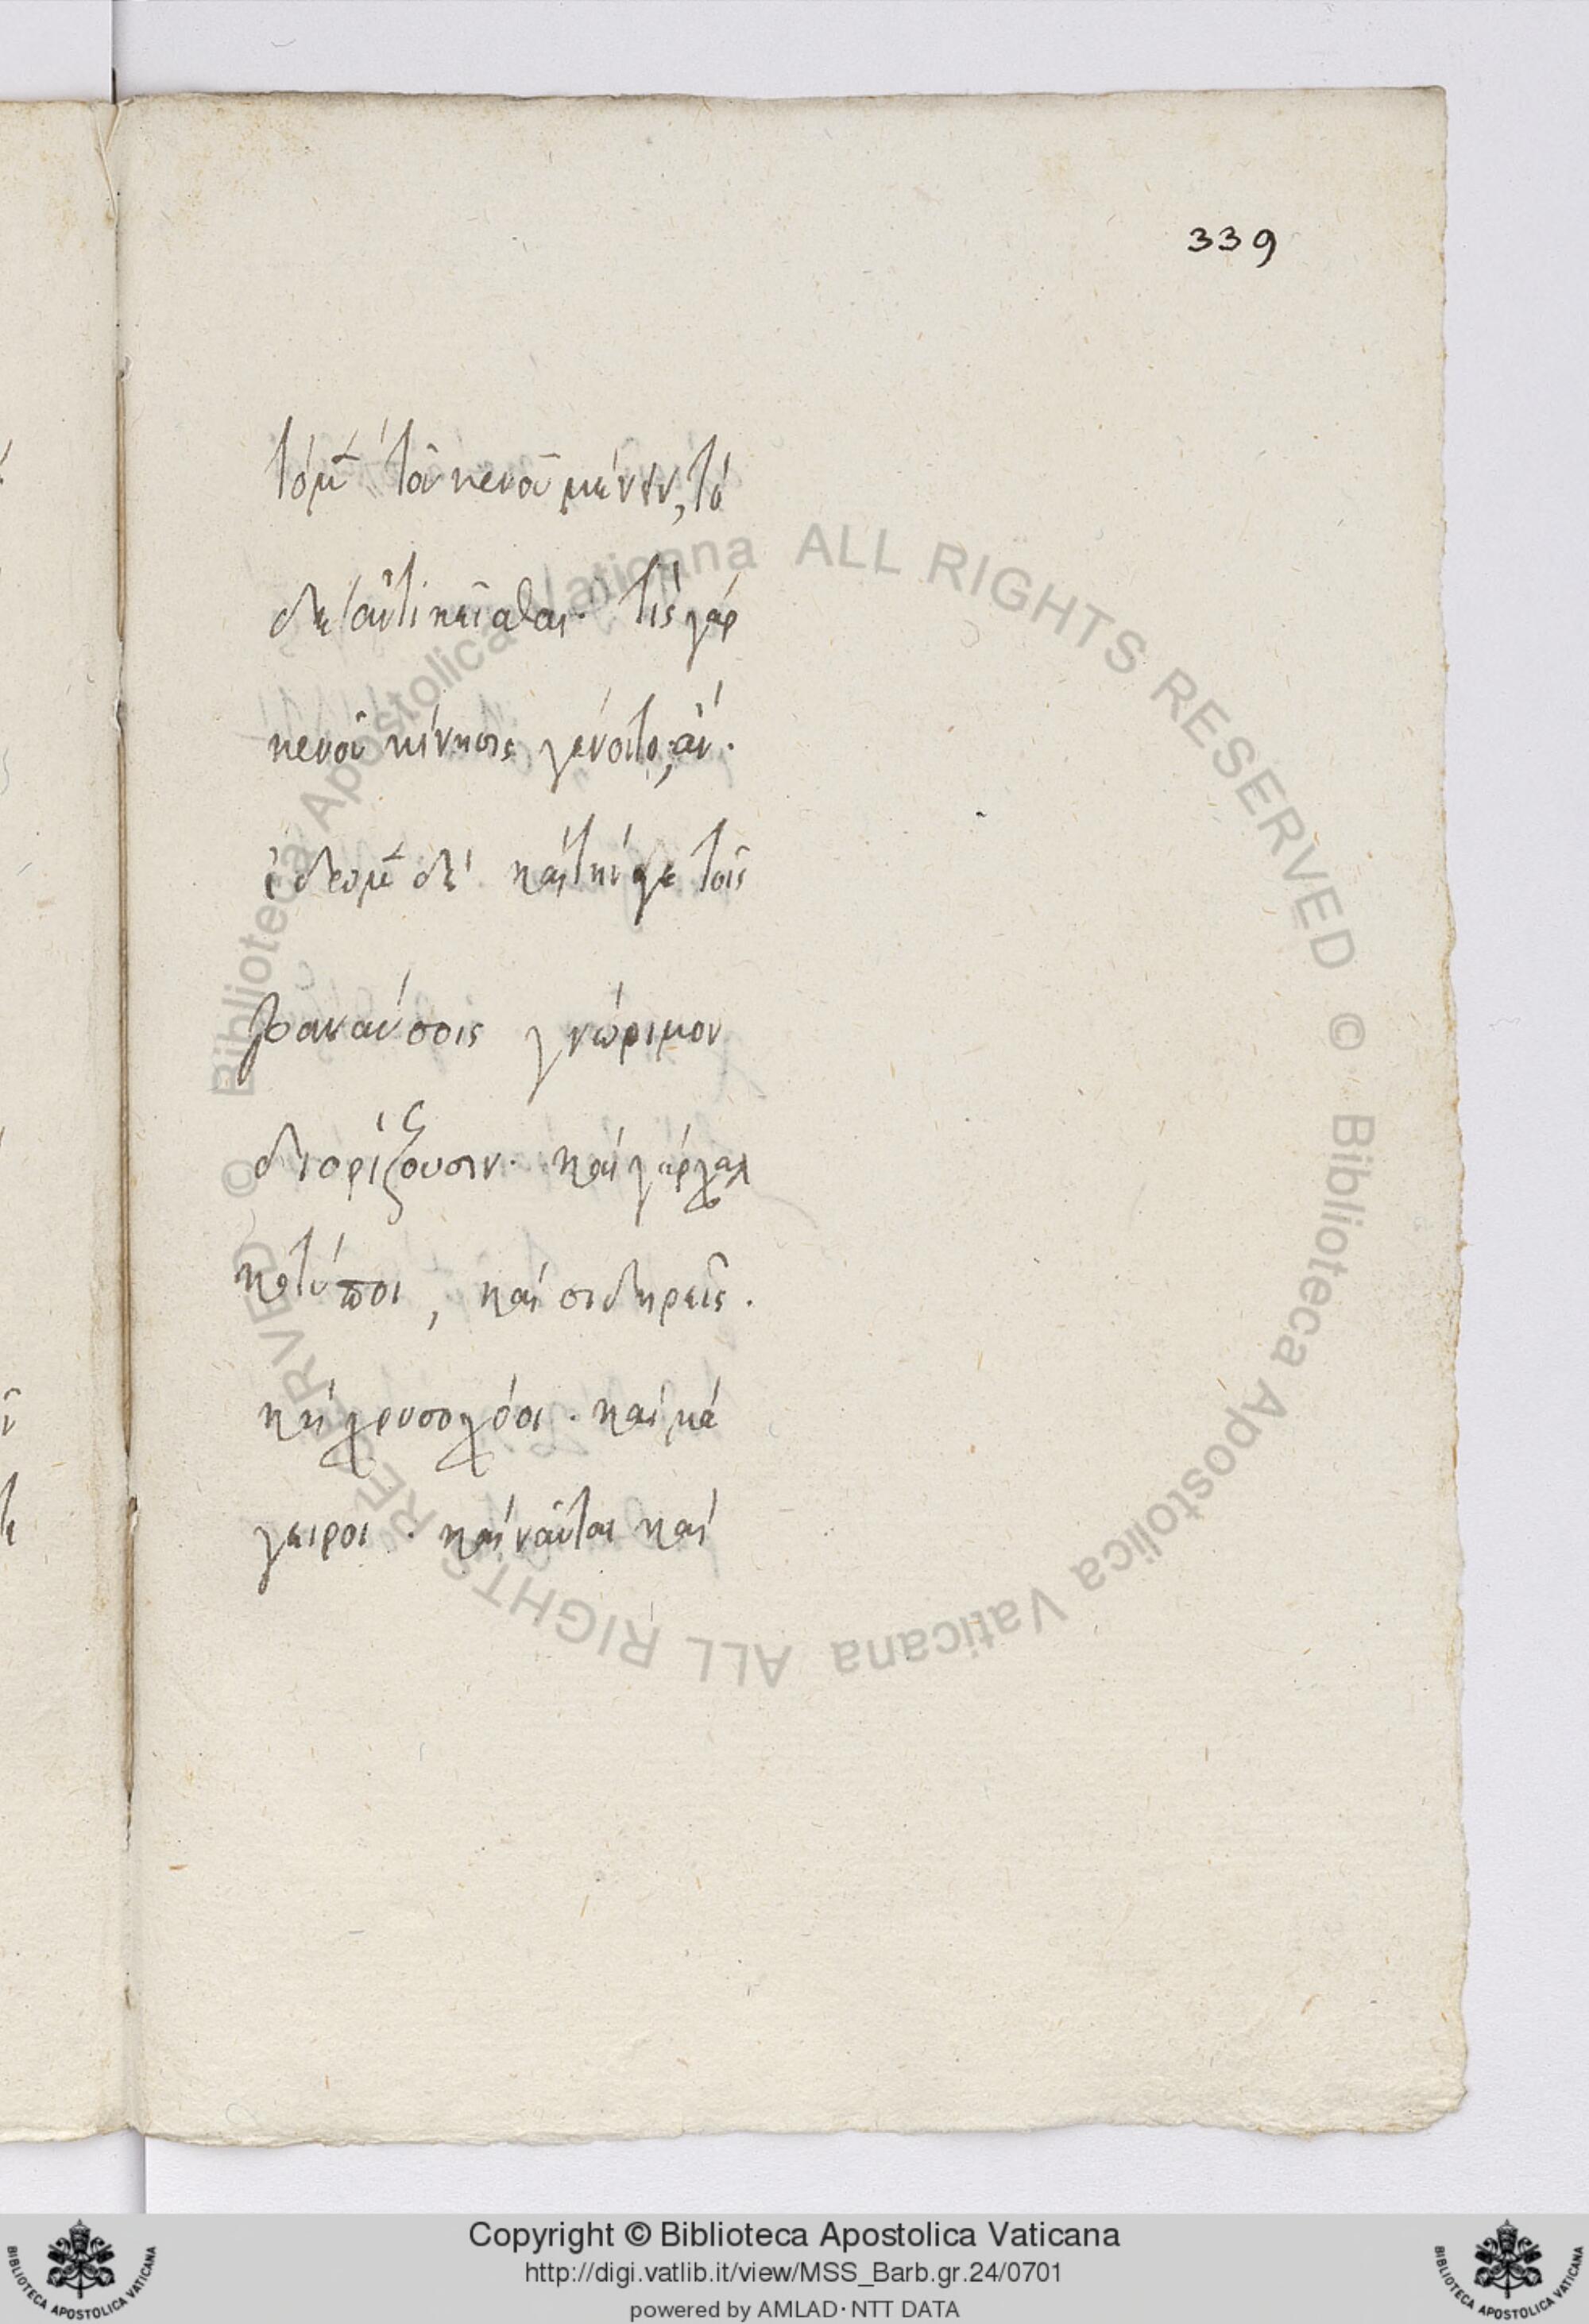 339
τὸ μ̃ τοῦ κενοῦ μὲν ὂν, τὸ
δὲ ἀντικεῖσθαι. τίς γὰρ
κενοῦ κίνησις γένοιτο, ἄν.
καὶ τήν γε τοῖς
βαναύσοις γνώριμον
διορίζουσιν. καὶ γὰρ χαλ
κοτύποι, καὶ σιδηρεῖς.
καὶ χρυσοχόοι. καὶ μά
γειροι. καὶ ναῦται καὶ
© Biblioteca Apostolica Vaticana ALL RIGHTS RESERVED © Biblioteca Apostolica Vaticana ALL RIGHTS RESERVED
BIBLIOTECA APOSTOLICA VATICANA
Copyright © Biblioteca Apostolica Vaticana
http://digi.vatlib.it/view/MSS_Barb.gr.24/0701
powered by AMLAD·NTT DATA
BIBLIOTECA APOSTOLICA VATICANA